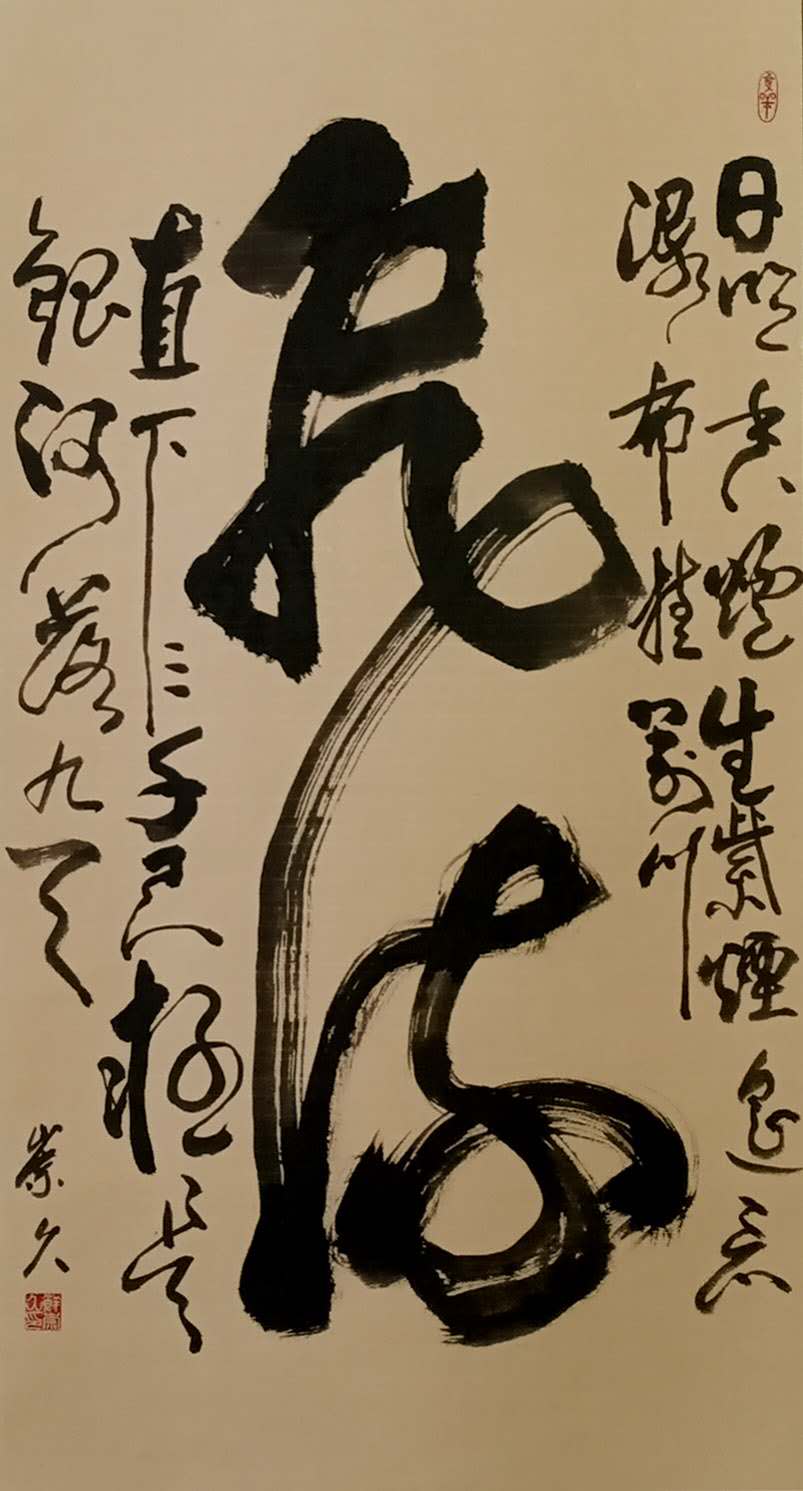 日照香爐生紫煙遙看
瀑布挂前川
飛流
直下三千尺疑是
銀河落九天
崇久